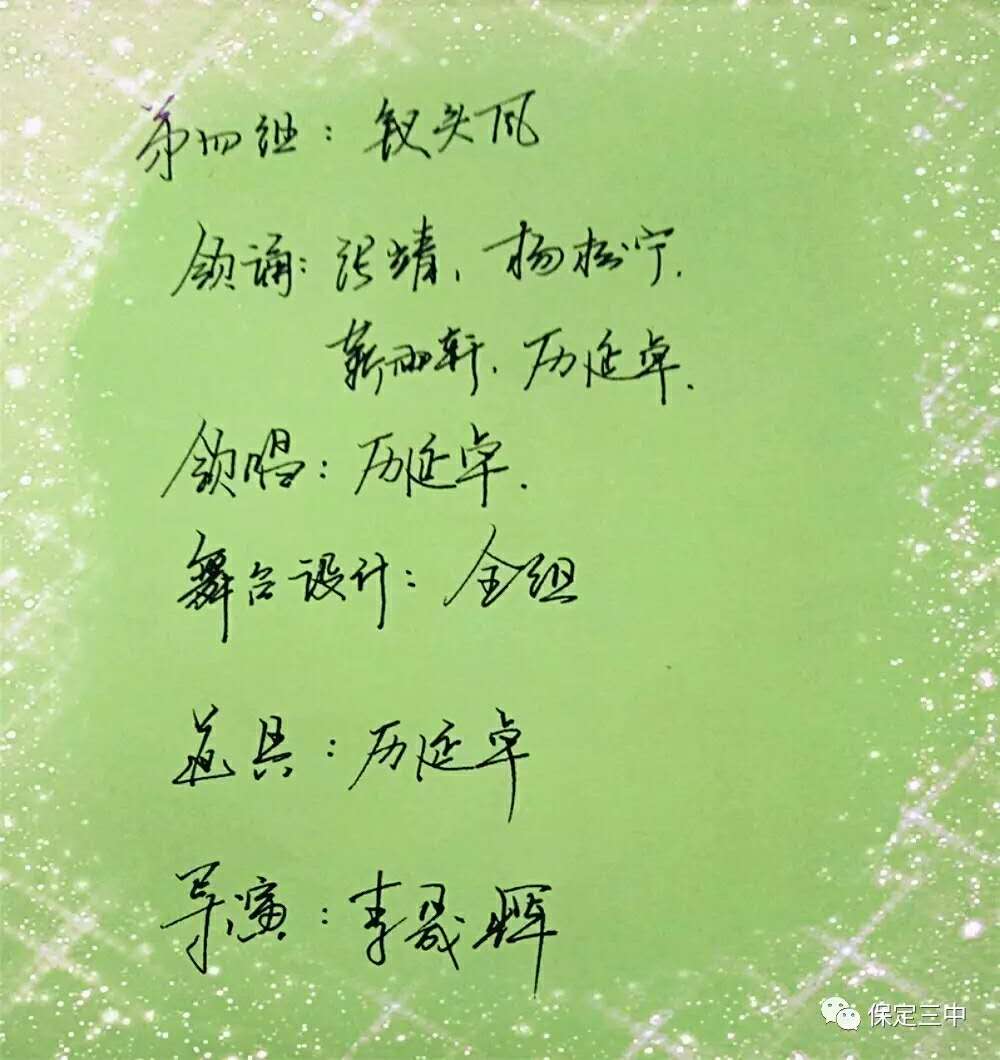 第四组：钗头凤
领诵：张靖、杨松宁、
靳雨轩、历延卓、
领唱：历延卓.
舞台设计：全组
道具：历延卓
导演：李晟辉
保定三中